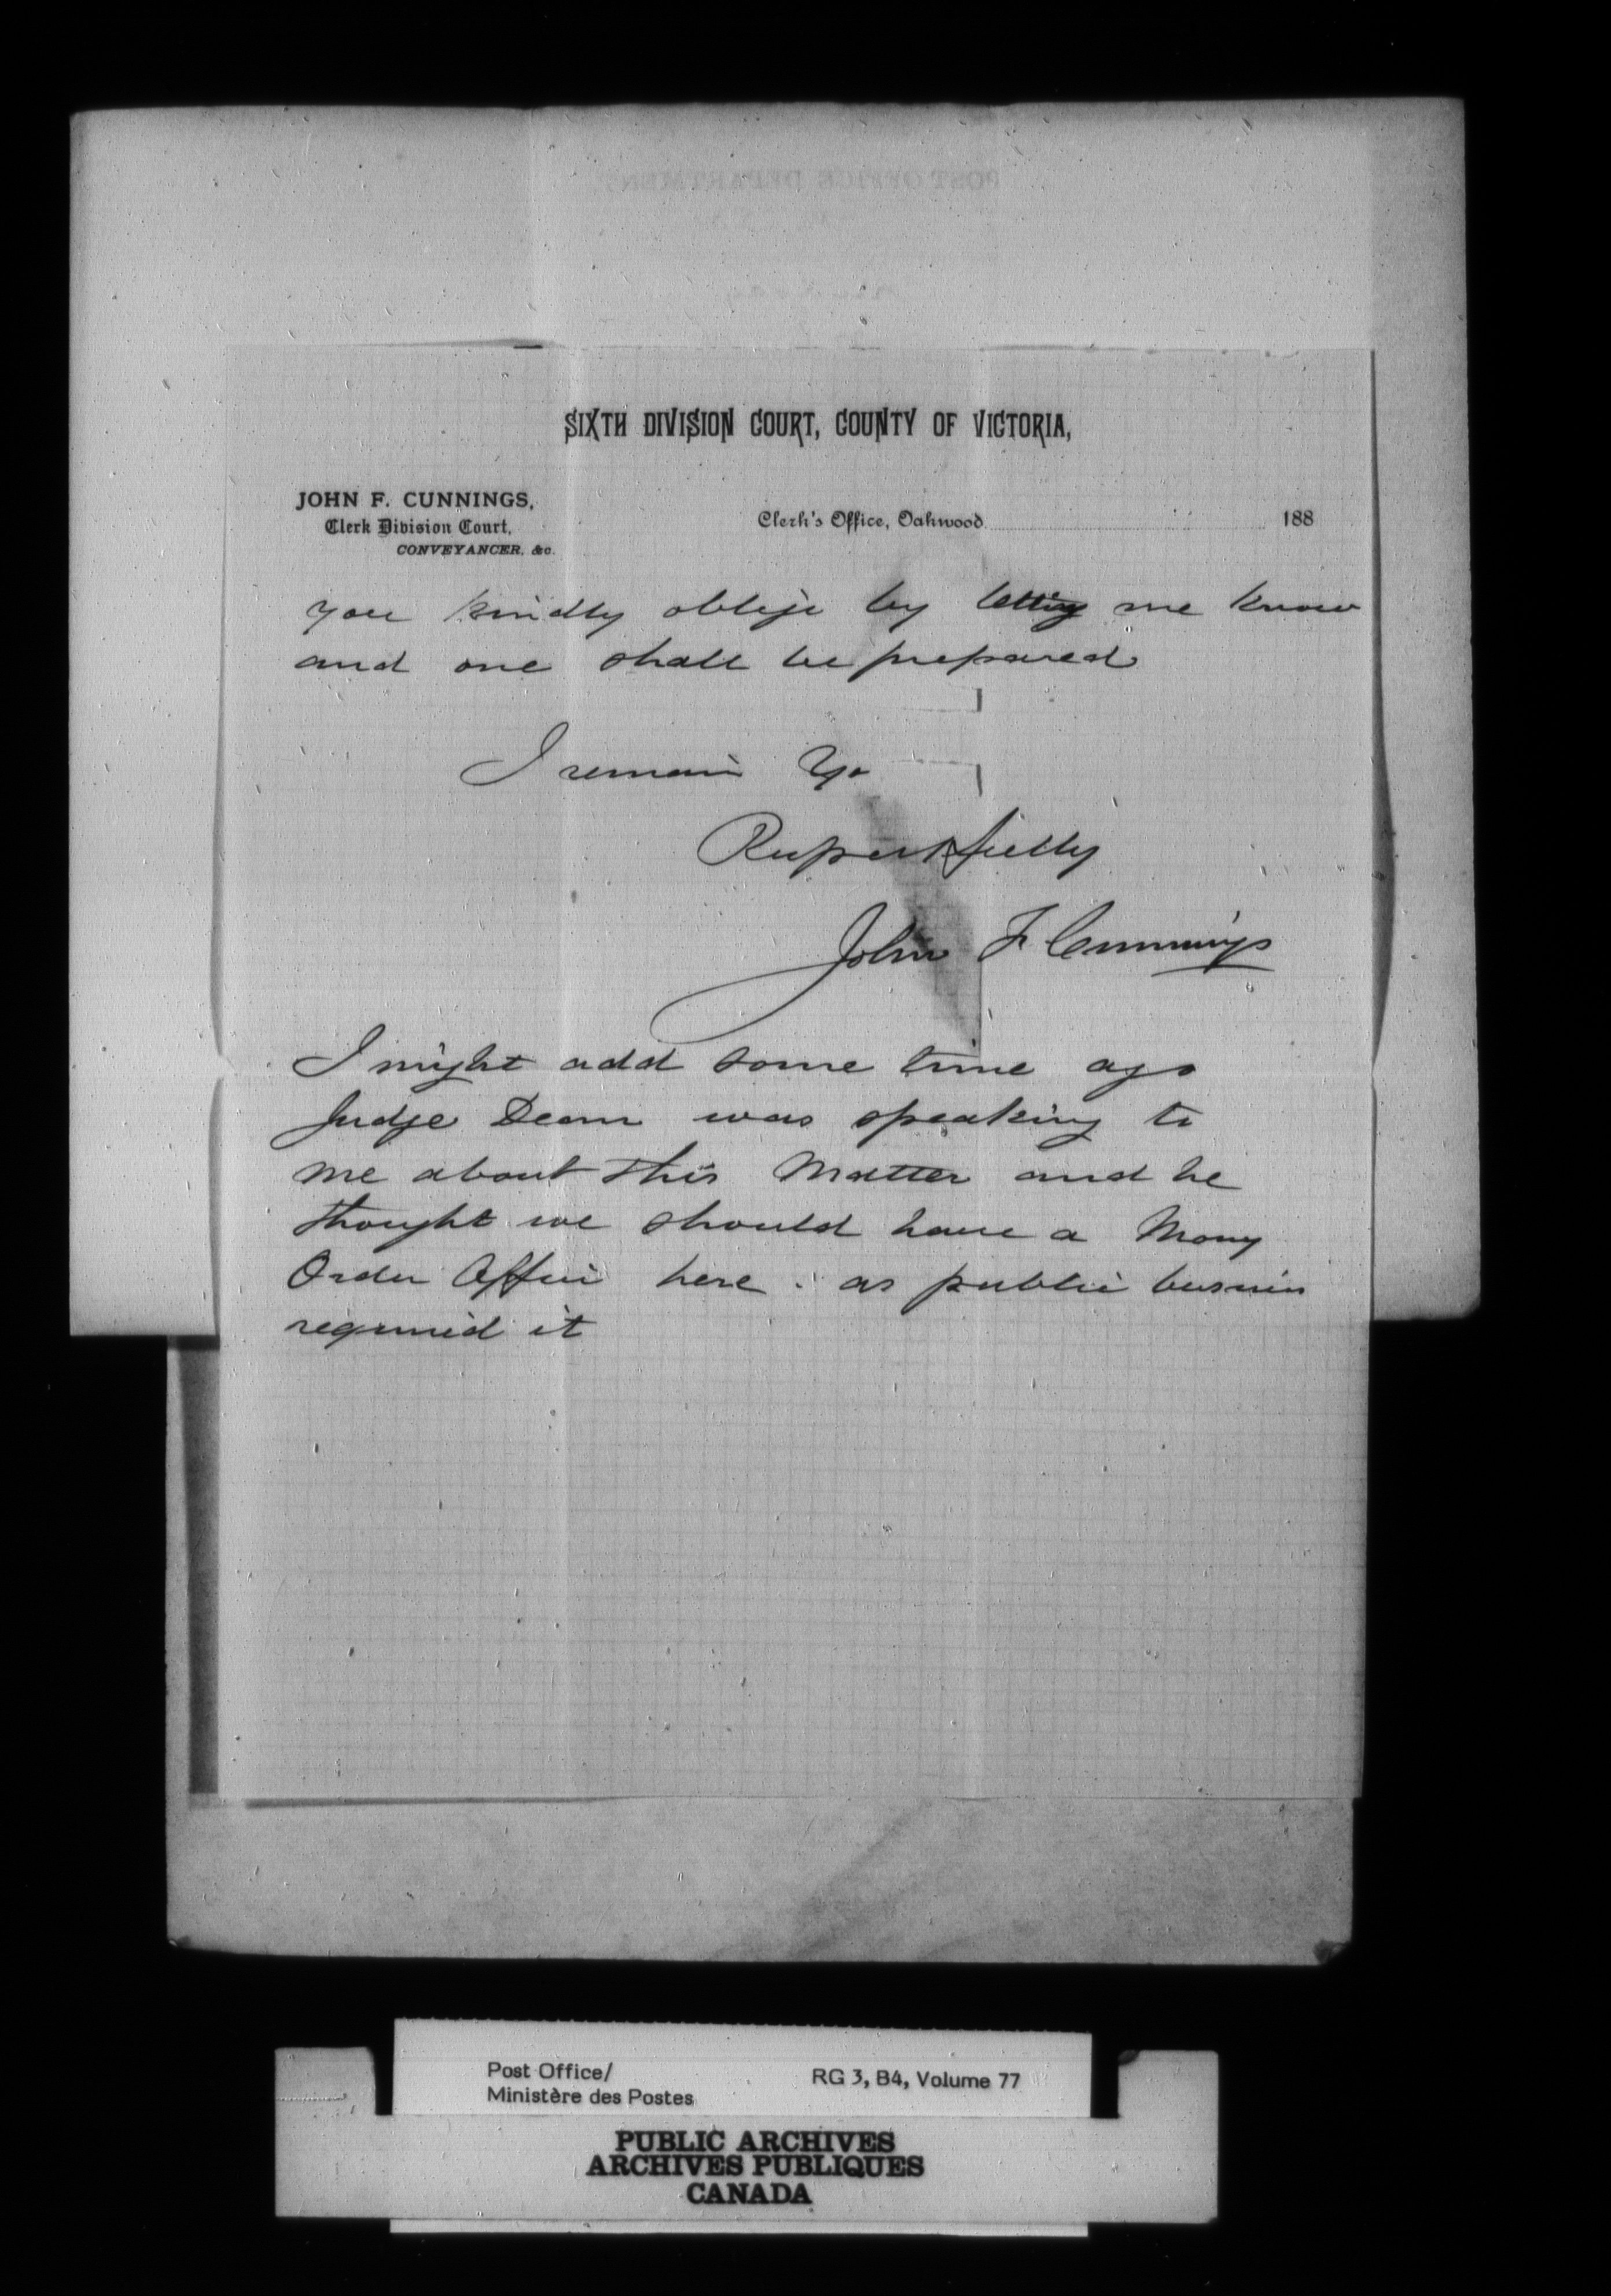 POST OFFICE DEPARTMENT
SIXTH DIVISION COURT, COUNTY OF VICTORIA,
JOHN F. CUNNINGS,
Clerk Division Court,
CONVEYANCER, &c.
Clerk's Office, Oakwood 188
you kindly oblige by letting me know
and one shall be prepared
I remain Yo
Respectfully
John F Cunnings
I might add some time ago
Judge Dean was speaking to
me about this Matter and he
thought we should have a Mony
Order Office here . as public business
required it
Post Office/
Ministère des Postes
RG 3, B4, Volume 77
PUBLIC ARCHIVES
ARCHIVES PUBLIQUES
CANADA